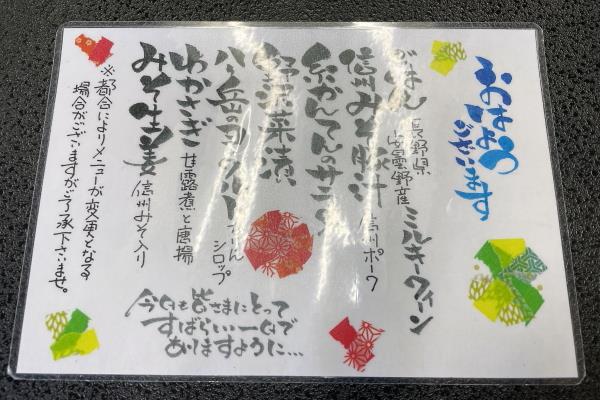 おはよう
ございます
ごはん 長野県
安曇野産 ミルキークイーン
信州みそ豚汁 信州ポーク
糸かんてんのサラダ
野沢菜漬
八ヶ岳のヨーグルト りんご
シロップ
わかさぎ 甘露煮と唐揚
みそ生姜 信州みそ入り
※都合によりメニューが変更となる
場合がございますがご了承下さいませ。
今日も皆さまにとって
すばらしい一日で
ありますように…